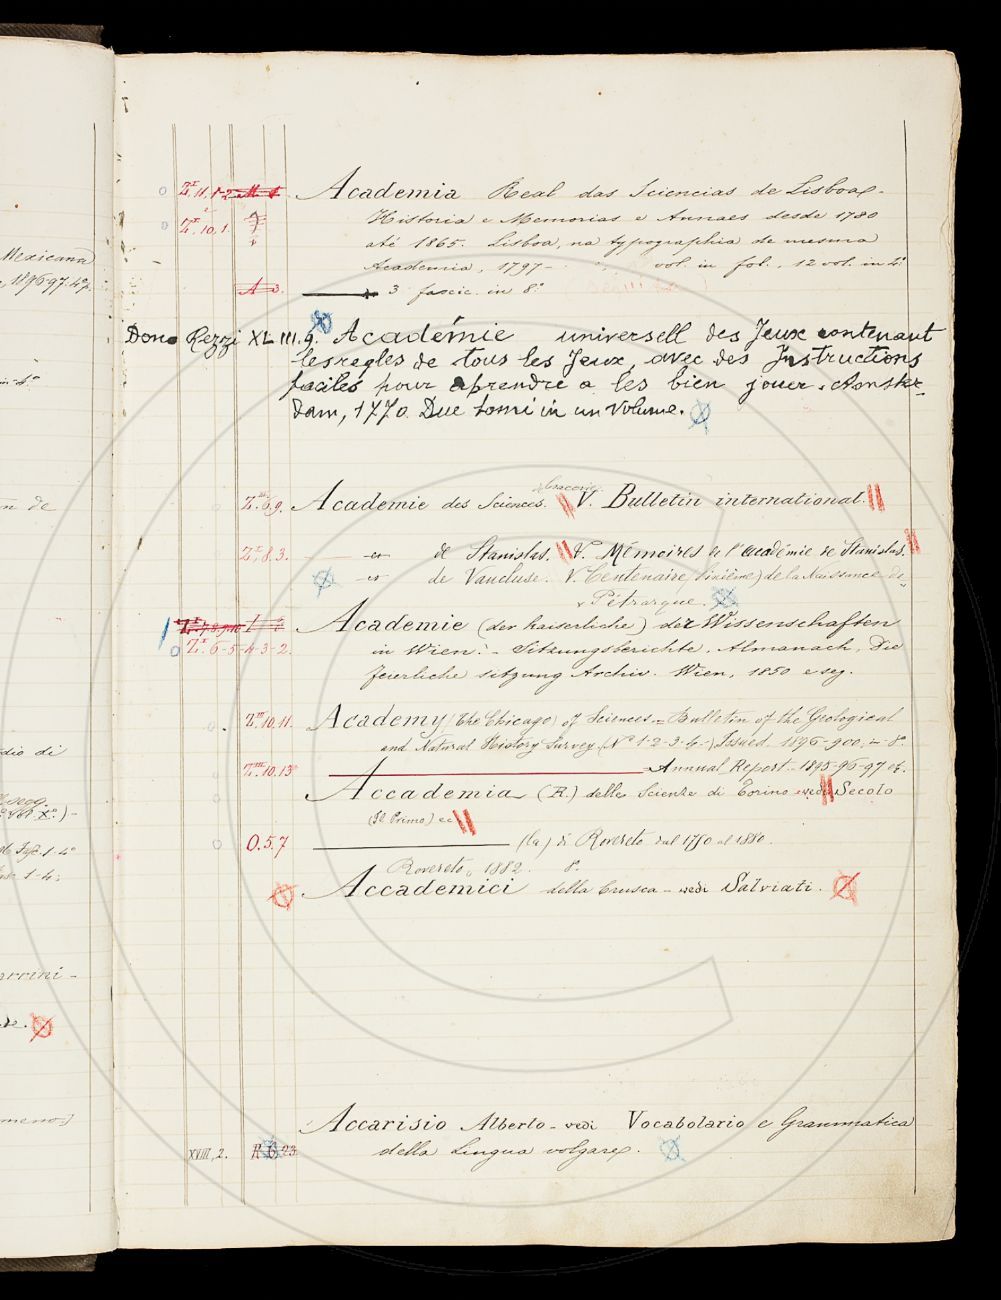 Mexicana
1896-97.4°
n de
dio di
arrini -
meno]
Z.II,1-2 Academia Real das Sciencias de Lisboa.
Z.10,1. Historia e Memorias e Annaes desde 1780
até 1865. Lisboa, na typographia de mesma
Academia, 1797- vol. in fol., 12 vol. in 4°
A 3. 3 fascic. in 8°
Dono Rezzi XLIII.9. Académie universell des Jeux contenant
les regles de tous les Jeux, avec des Instructions
faciles pour aprendre a les bien jouer. Amster-
dam, 1770. Due tomi in un volume.
Cracovie
Z.6,9. Academie des Sciences. V. Bulletin international.
Z.8.3. — de Stanislas. V. Mémoires de l'Académie de Stanislas.
— de Vaucluse. V. Centenaire (sixième) de la Naissance de
Pétrarque.
Academie (der Kaiserliche) der Wissenschaften
Z.6-5-4-3-2. in Wien: - Sitzungsberichte. Almanach, Die
feierliche sitzung Archiv. Wien, 1850 e seg.
Z.10.11. Academy (The Chicago) of Sciences = Bulletin of the Geological
and Natural History Survey (N° 1-2-3-4-) Issued. 1896-900, in 8°
Z.10.13 Annual Report - 1895-96-97 ec.
Accademia (R.) delle Scienze di Torino vedi Secolo
(Il Primo) ec
O.5.7 (la) di Rovereto dal 1750 al 1880.
Rovereto, 1882. 8°
Accademici della Crusca - vedi Salviati.
Accarisio Alberto - vedi Vocabolario e Grammatica
XVIII,2. 23 della Lingua volgare.